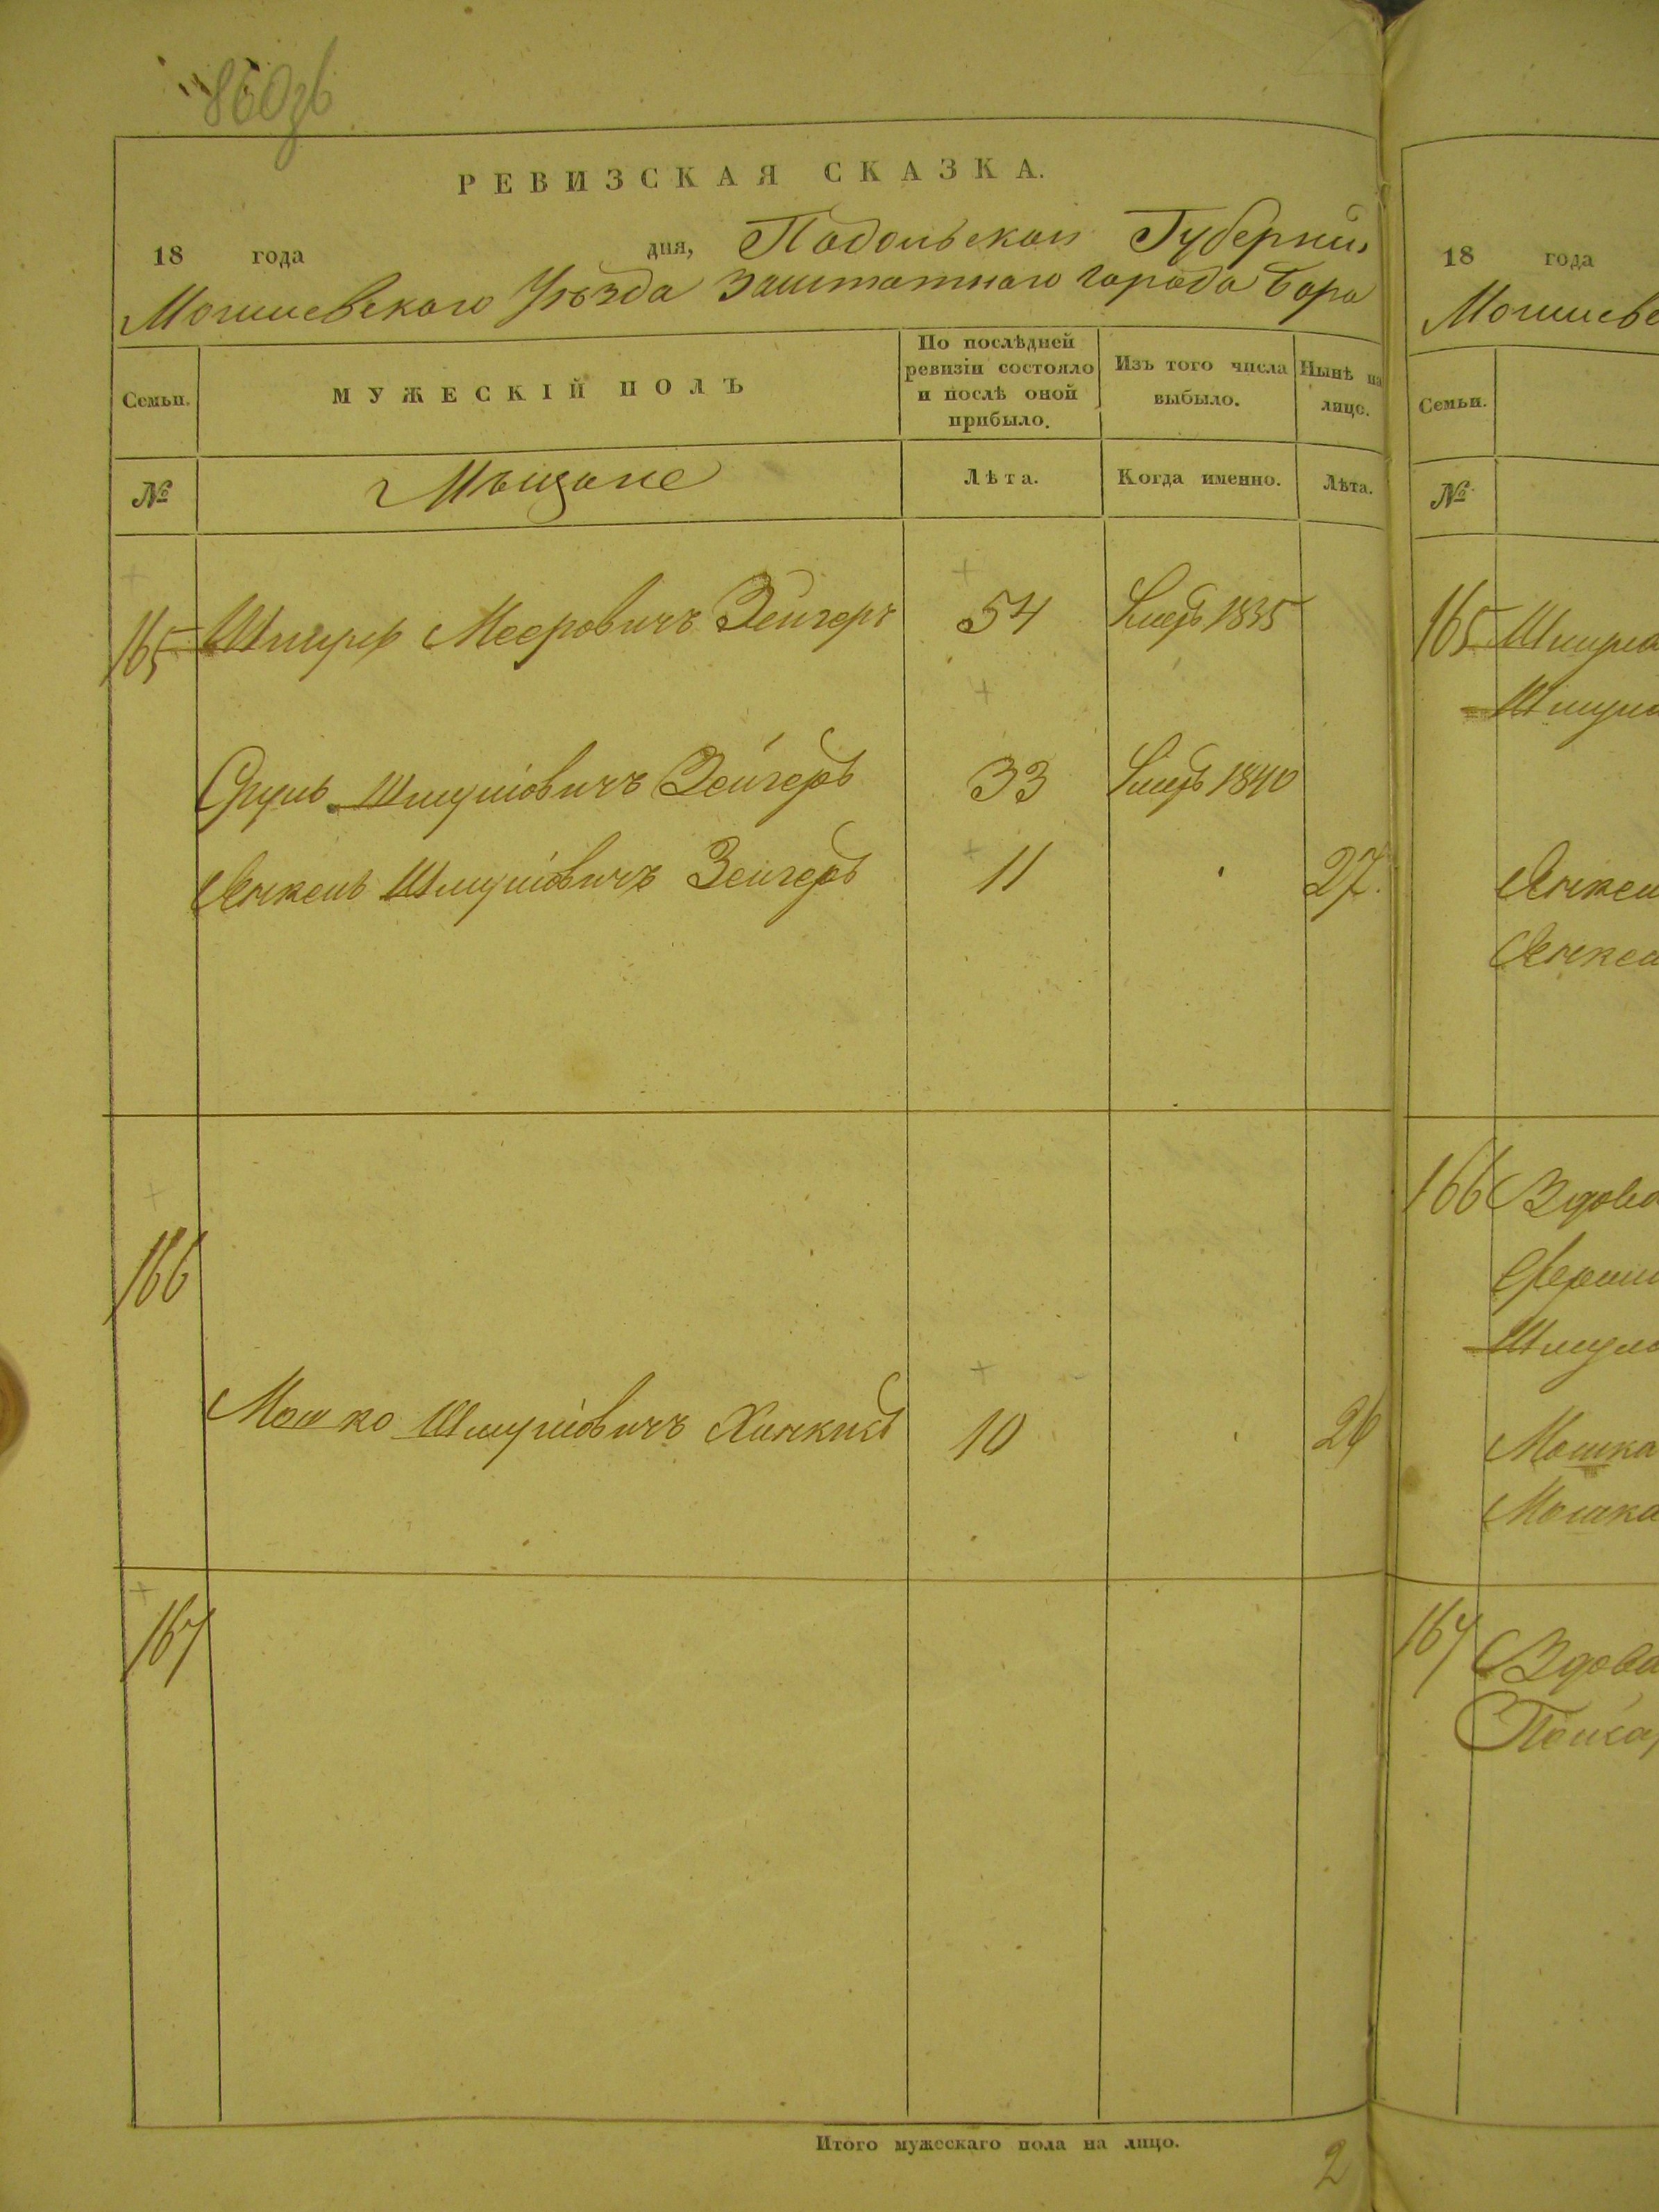 860зв
РЕВИЗСКАЯ СКАЗКА.
18 года дня, Подольской Губерніи
Могилевскаго Уѣзда заштатнаго города Бара
Семьи. МУЖЕСКІЙ ПОЛЪ По послѣдней ревизіи состояло и послѣ оной прибыло. Изъ того числа выбыло. Нынѣ на лицо.
№ Мѣщане Лѣта. Когда именно. Лѣта.
165 Шмуль Мееровичъ Зейгеръ 54 1835
Сруль Шмуліовичъ Зейгеръ 33 1840
Янкель Шмуліовичъ Зейгеръ 11 27.
166
Мошко Шмуліовичъ 10 26
167
Итого мужескаго пола на лицо. 2
18 года
Могилевс
Семьи.
№
165 Шмула
Шмула
Янкел
Янкел
166 Вдова
Шмула
Мошка
Мошка
167 Вдова